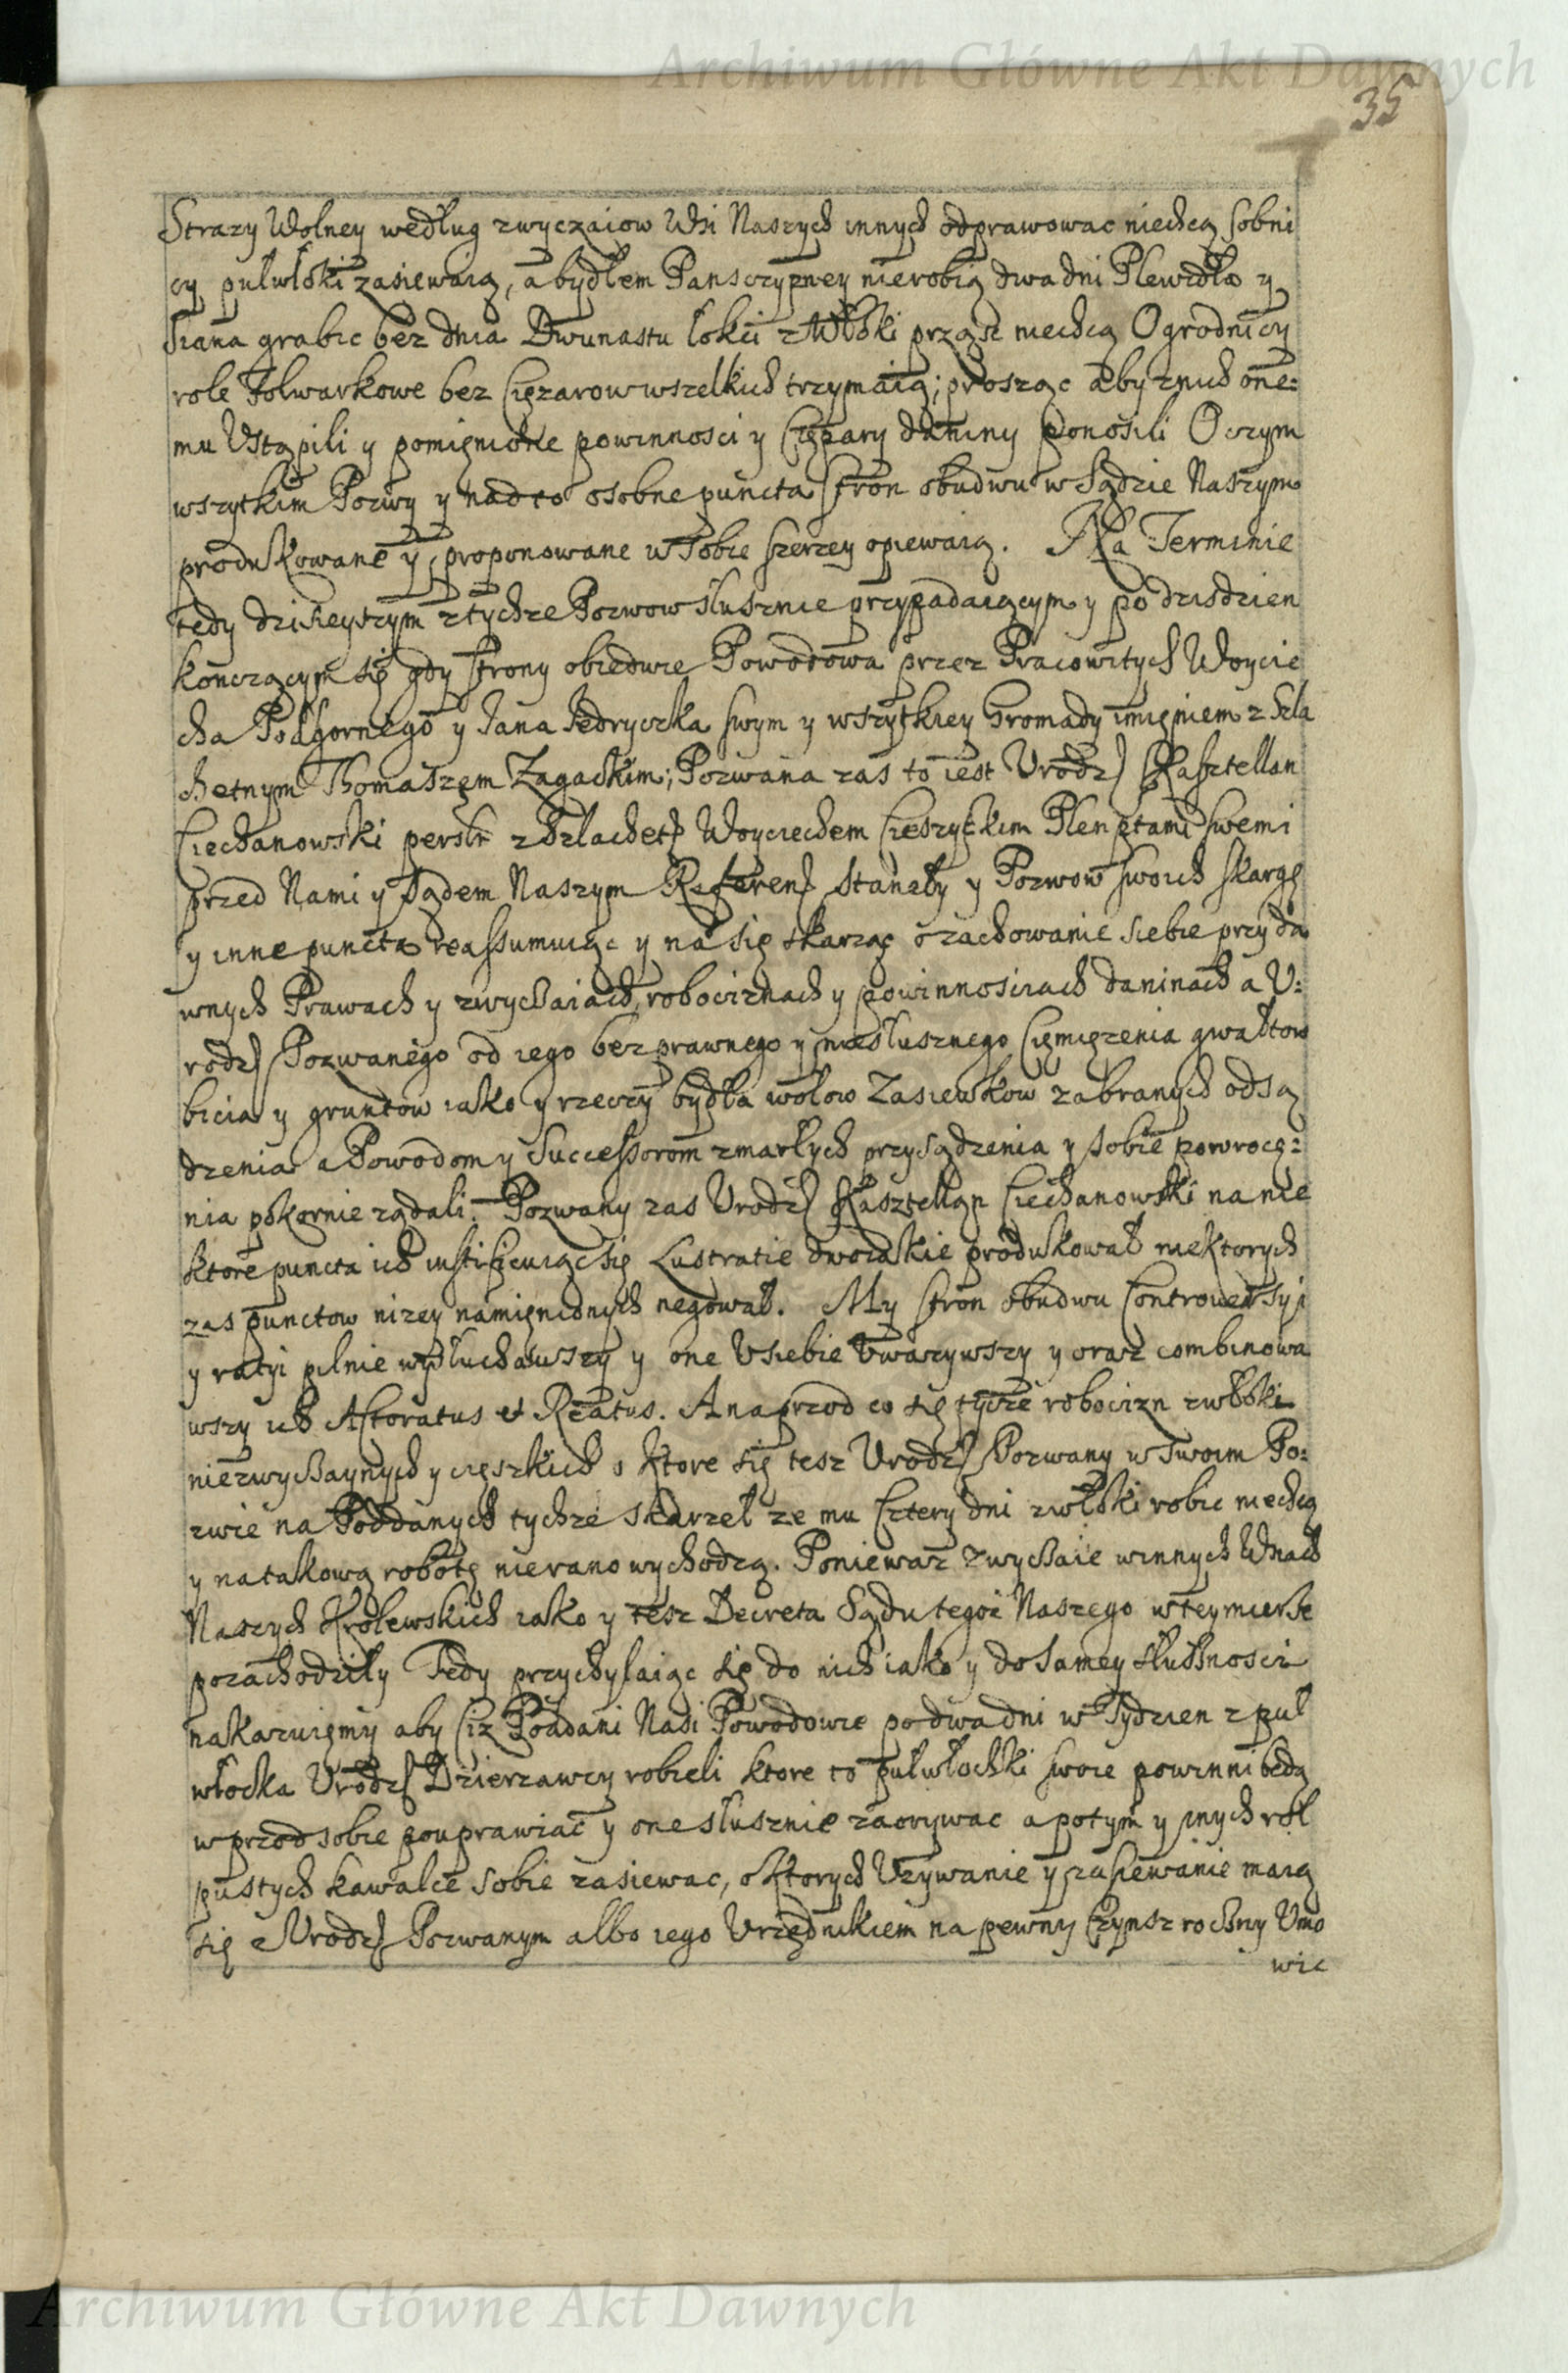 Archiwum Główne Akt Dawnych
35
Strazy Wolney według zwyczaiow Wsi Naszych innych odprawowac niechcą sobni
cy pulwłoki zasiewaią, a bydłem Pansczyzney nierobią dwa dni Plewidła y
Siana grabic bez dnia Dwunastu łokci z Włoki prząsc niechcą Ogrodnicy
role Folwarkowe bez Ciezarow wszelkich trzymaią; prosząc aby znich one=
mu Ustąpili y pomienione powinnosci y Ciężary daniny ponosili O czym
wszytkim Pozwy y nadto osobne puncta stron obudwu w Sądzie Naszym
produkowane y proponowane w sobie szerzey opiewaią. Na Terminie
tedy dzisieyszym z tychze Pozwow slusznie przypadaiącym y po dzisdzien
konczącym się gdy strony obiedwie Powodowa przez Pracowitych Woycie
cha Podgornego y Jana Jedryczka swym y wszytkiey Gromady imieniem z Szla
chetnym Thomaszem Zagackim; Pozwana zas to iest Urodz Kasztellan
Ciechanowski perslr z Szlachet Woyciechem Cieszyckim Plenptami swemi
przed Nami y Sądem Naszym Referen staneły y Pozwow swoich skargę
y inne puncta reassumuiąc y na się skarząc o zachowanie siebie przy da
wnych Prawach y zwyczaiach, robociznach y powinnosciach daninach a U=
rodz Pozwanego od iego bezprawnego y niesłusznego Ciemięzenia gwałtow
bicia y gruntow iako y rzeczy bydła wołow Zasiewkow zabranych odsą
dzenia a Powodom y Successorom zmarłych przysądzenia y sobie powroce=
nia pokornie ządali. Pozwany zas Urodz Kasztellan Ciechanowski na nie
ktore puncta ich iustificuiąc się Lustratie dwoiakie produkował niektorych
zas punctow nizey namienionych negował. My stron obudwu Controwersyi
y ratyi pilnie wysłuchawszy y one Usiebie Uwazywszy y oraz combinowa
wszy ich Actoratus et Reatus. A naprzod co się tycze robocizn zwłoki
niezwyczaynych y cięszkich o ktore się tesz Urodz Pozwany w swoim Po=
zwie na Poddanych tychze skarzeł ze mu Cztery dni zwłoki robic niechcą
y natakową robotę nierano wychodzą. Poniewaz zwyczaie winnych Wsiach
Naszych Krolewskich iako y tesz Decreta Sądu tegoż Naszego wteymierse
pozachodziły Tedy przychylaiąc się do nich iako y do samey słusznosci
nakazuięmy aby Ciz Poddani Nasi Powodowie po dwa dni w Tydzien z puł
włocka Urodz Dzierzawcy robieli ktore to pułwłochki swoie powinni będą
wprzod sobie pouprawiac y one słusznie zaorywac a potym y inych ról
pustych kawalce sobie zasiewac, o ktorych Uzywanie y zasiewanie maią
się z Urodz Pozwanym albo iego Urzędnikiem na pewny Czynsz roczny Umo
wic
Archiwum Główne Akt Dawnych